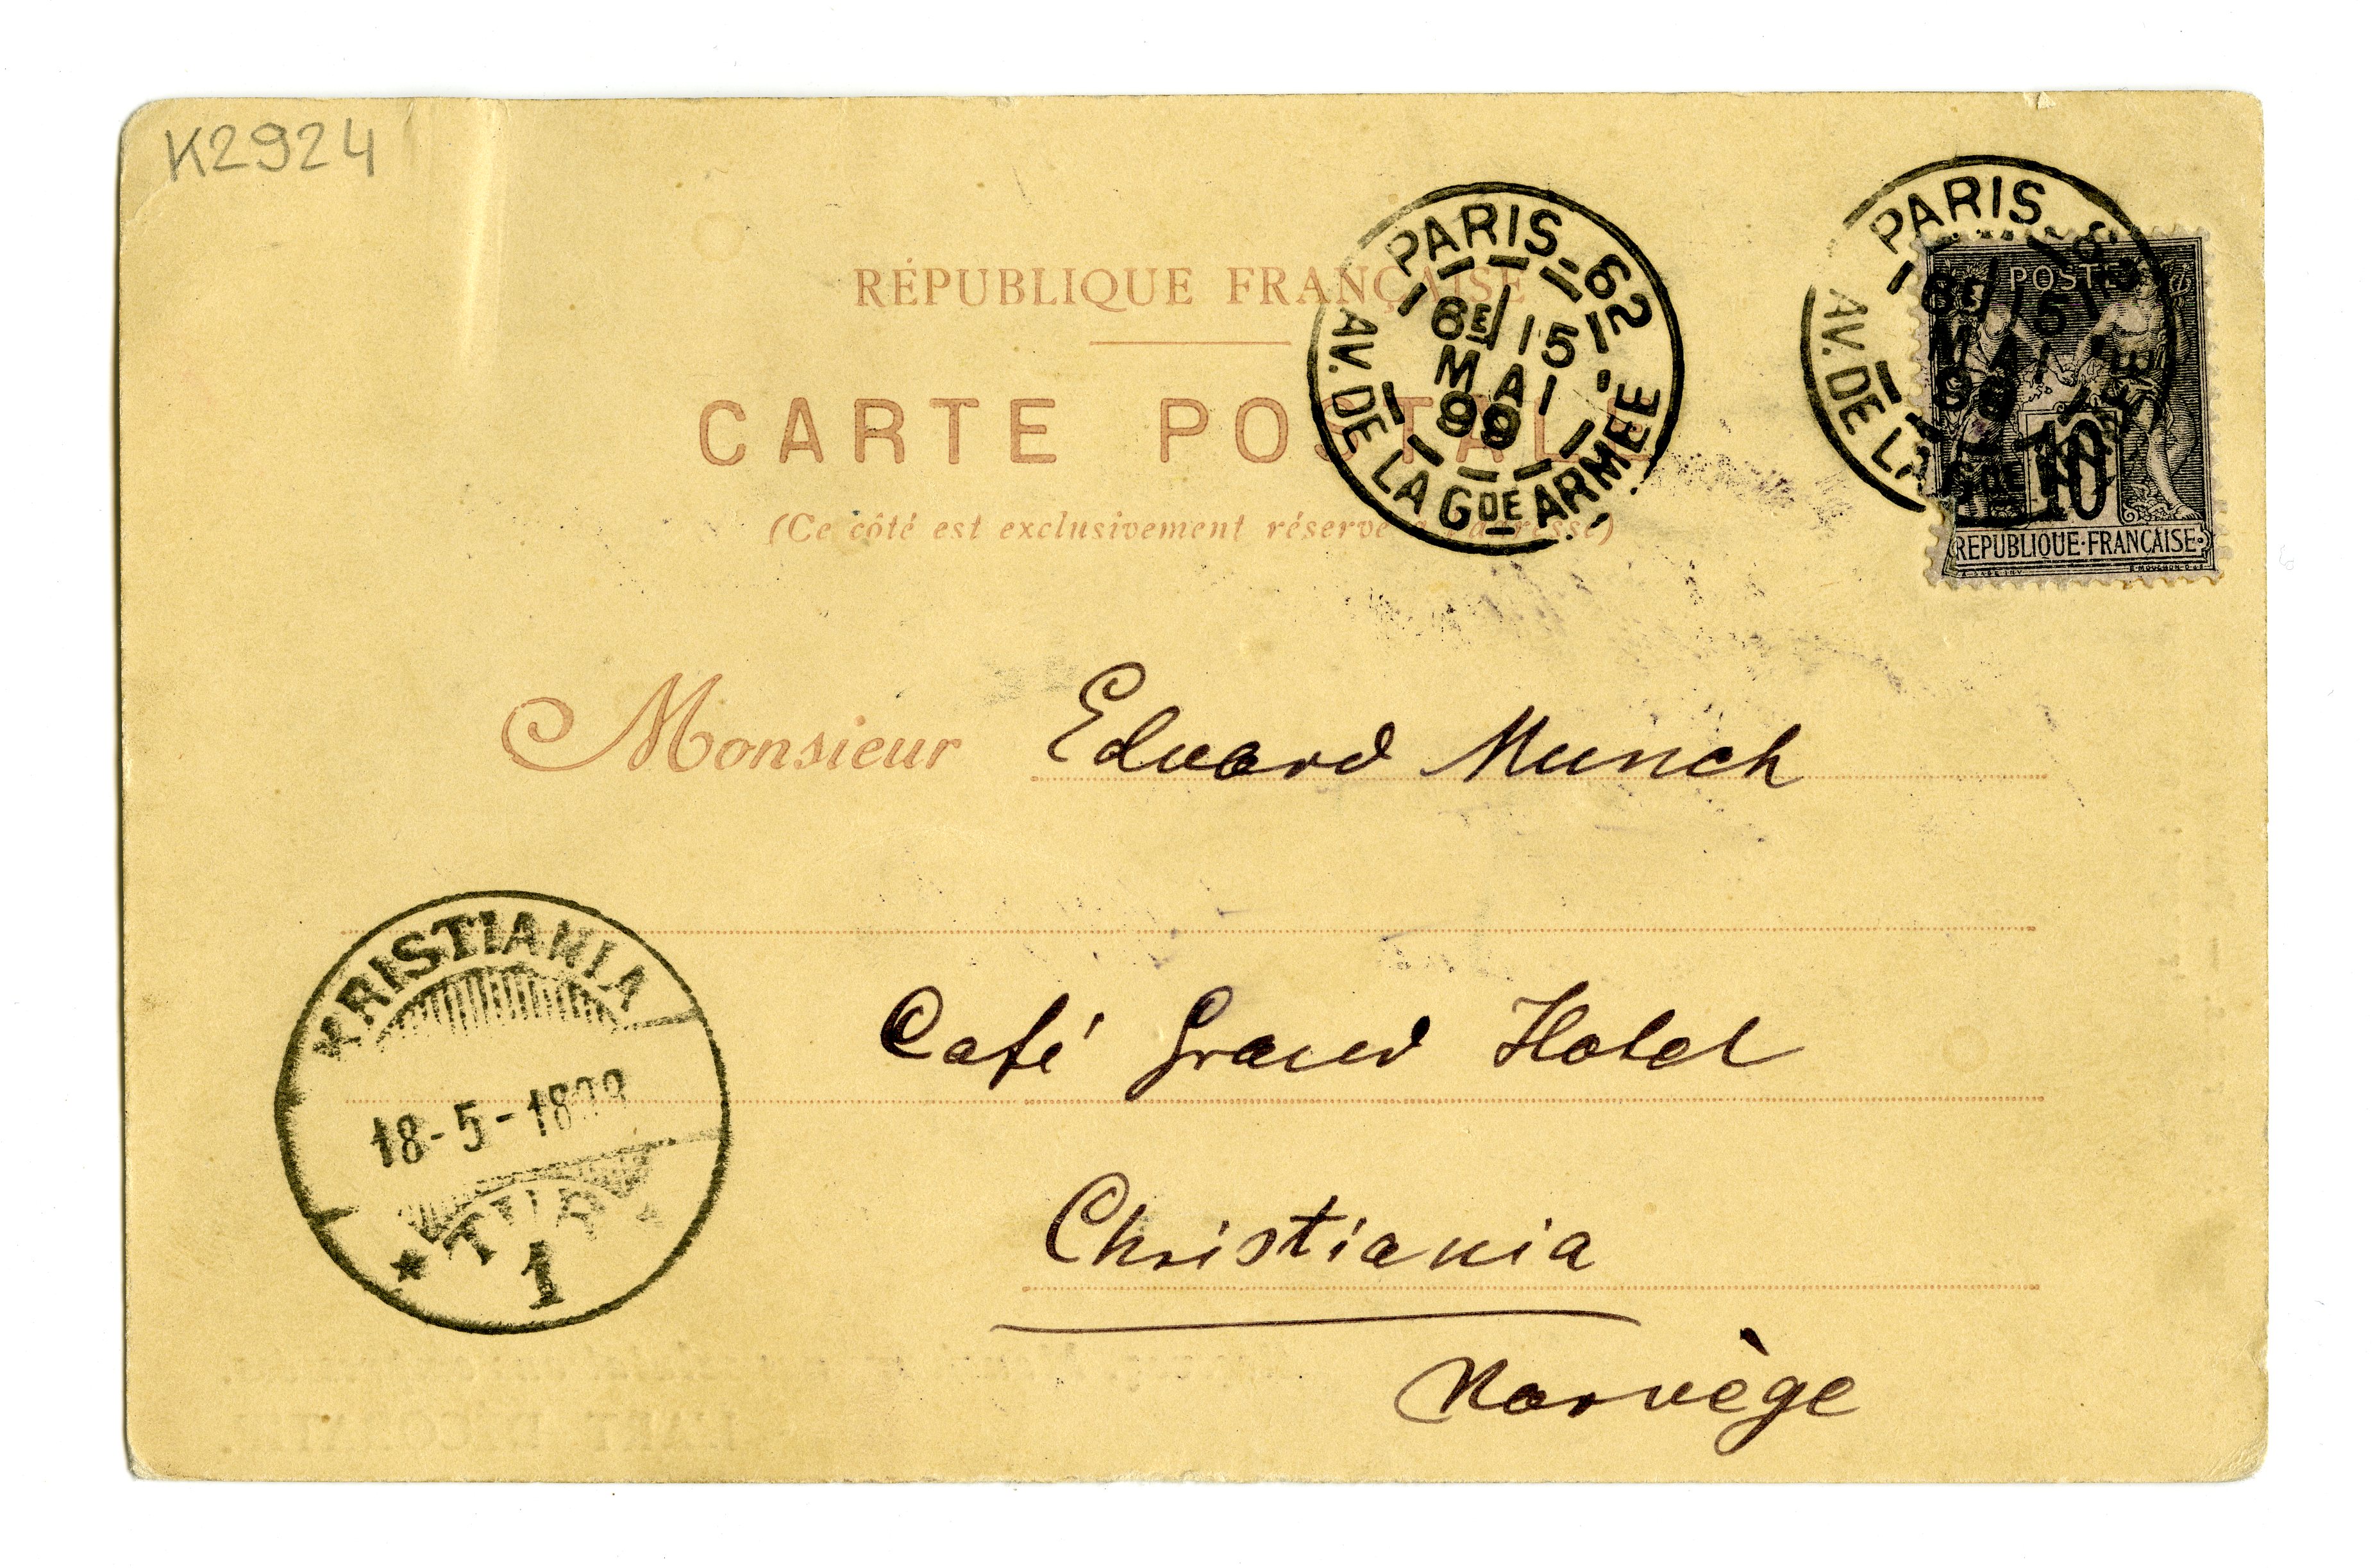 K2924
RÉPUBLIQUE FRANÇAISE
CARTE POSTALE
(Ce côté est exclusivement réservé à l'adresse)
PARIS_62
6E 15
MAI
99
AV. DE LA GDE ARMEE
PARIS_62
6E 15
MAI
99
AV. DE LA GDE ARMEE
POSTES
10
REPUBLIQUE·FRANCAISE
Monsieur Eduard Munch
Café Grand Hotel
Christiania
Norvège
KRISTIANIA
18-5-1899
1
L'ART DÉCORATIF